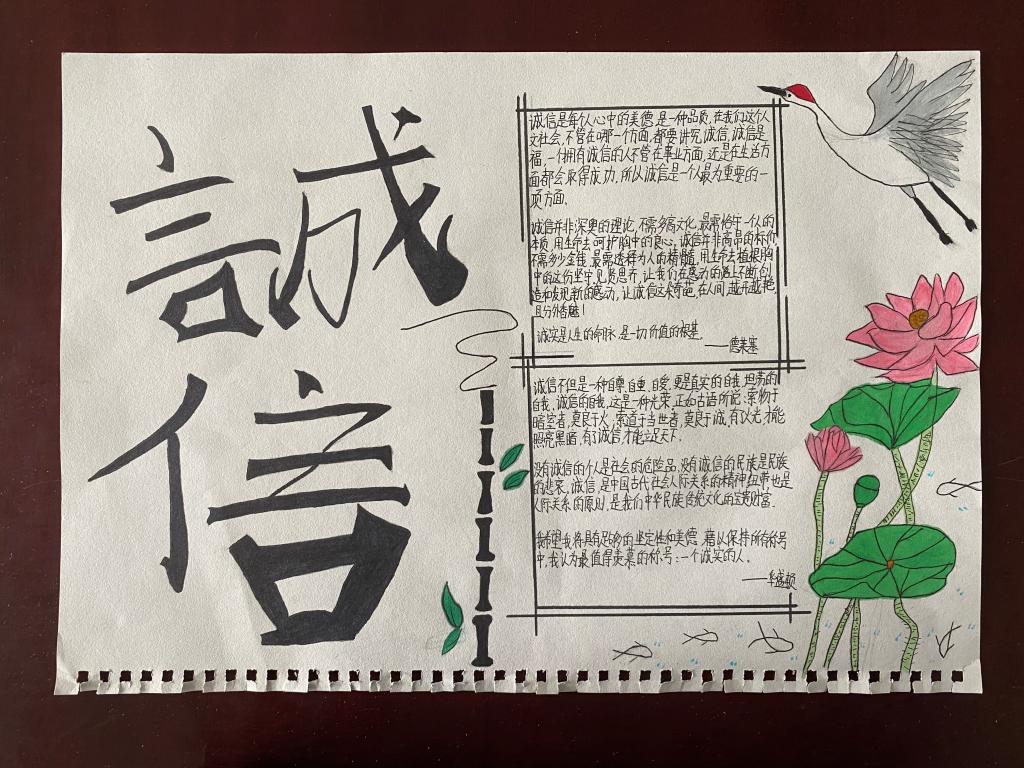 誠信
诚信是每个人心中的美德,是一种品质,在我们这个人
文社会,不管在哪一个方面,都要讲究诚信,诚信是
福,一个拥有诚信的人不管在事业方面,还是在生活方
面都会取得成功,所以诚信是一个人最为重要的一
项方面。
诚信并非深奥的理论,不需多高文化,最需恪守一人的
本质,用生命去呵护胸中的良心,诚信并非高昂的标价
不需多少金钱,最需透释为人的精髓,用生命去植根胸
中的这份坚守,见贤思齐,让我们在感动的路上不断创
造和发现新的感动,让诚信这朵奇葩,在人间,越开越艳
且分外香馥!
诚实是人生的命脉,是一切价值的根基。
——德莱塞
诚信不但是一种自尊,自重,自爱,更是真实的自我,坦荡的
自我,诚信的自我,这是一种光荣,正如古语所说:索物于
暗室者,莫良于火,索道于当世者,莫良于诚,有以尤,才能
照亮黑暗,有了诚信,才能立足天下。
没有诚信的个人是社会的危险品,没有诚信的民族是民族
的悲哀,诚信,是中国古代社会人际关系的精神纽带,也是
人际关系的原则,是我们中华民族传统文化的宝贵财富.
我希望我将具有足够的坚定性和美德,藉以保持所有称号
中,我认为最值得羡慕的称号:一个诚实的人。
——华盛顿